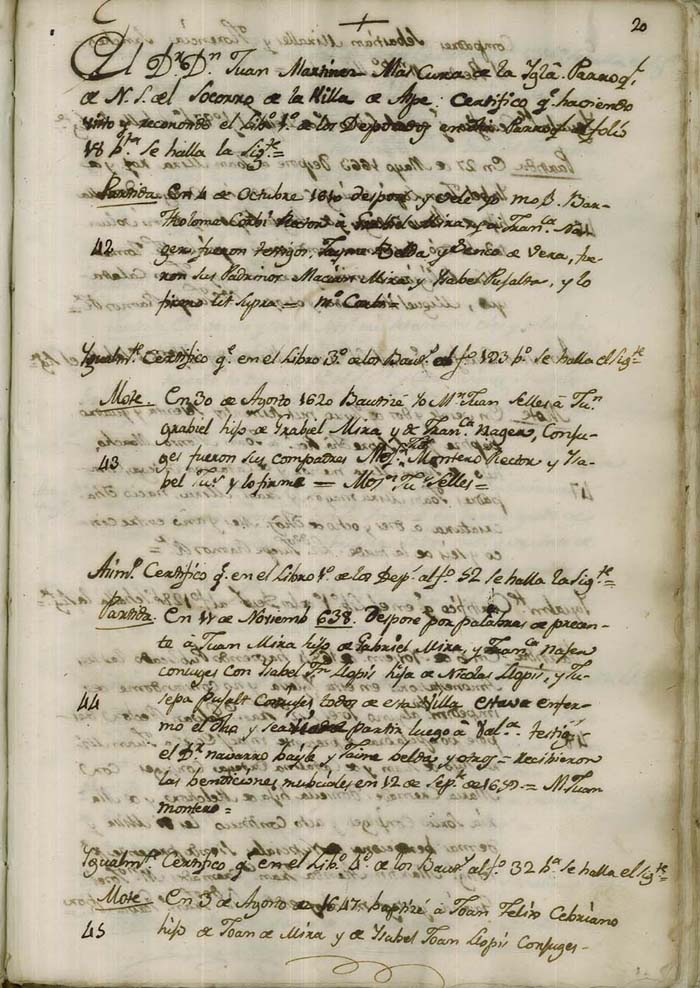 20
El Dr. Dn. Juan Martinez Mās Cura de la Iglā. Parroql.
de N. S. del Socorro de la Villa de Aspe: Certifico q. haviendo
visto y reconocido el Libo. 1º de los Desposados en dha Parroql. al folio
18 bta. se halla la Sigte.=
Partida. En 4 de Octubre 1610 despose y vele yo mos. Bar-
tholome Corbi Rector à Grabiel Mira, y a Franca. Na-
42 ger: fueron testigos, Jayme Belda y Vensa de Vera, fue-
ron sus Padrinos Macian Mira y Ysabel Pujalte, y lo
firmo Ut Supra = mº Corbi=
Ygualmte. Certifico qe. en el Libro 3º de los Bauts. al fº 123 bº. se halla el Sigte=
Mote. En 30 de Agosto 1620 Bautizè Yo Mn. Juan Selles à Jun.
grabiel hijo de Grabiel Mira y de Franca. Nager, Conju-
43 ges fueron sus compadres Mosn. Montero Rector y Ysa-
bel y lo firme = Mosn. Ju. Selles=
Asimo. Certifico q. en el Libro 1º de los Desps. al fº 52 se halla la Sigte.=
Partida. En 11 de Noviemb 638. Despose por palabras de precen-
te à Juan Mira hijo de Gabriel Mira, y Franca. Najer
conjuges con Ysabel Jn Llopis hija de Nicolas Llopis, y Ju-
44 sepa Pujalt Conjuges todos de esta Villa estava enfer-
mo el dho y se partir luego à Vala. testigs.
el Dr. Navarro bayle y Jaime belda, y otros = Recibieron
las bendiciones nubciales en 12 de Sepe. de 1639.= M. Juan
montero=
Ygualmte. Certifico q. en el Libo. 4º de los Bauts. al fº 32 ba. se halla el Sigte=
Mote. En 3 de Agosto de 1647 baptizè à Joan Felix Cebriano
45 hijo de Joan de Mira y de Ysabel Joan Llopis Conjuges-